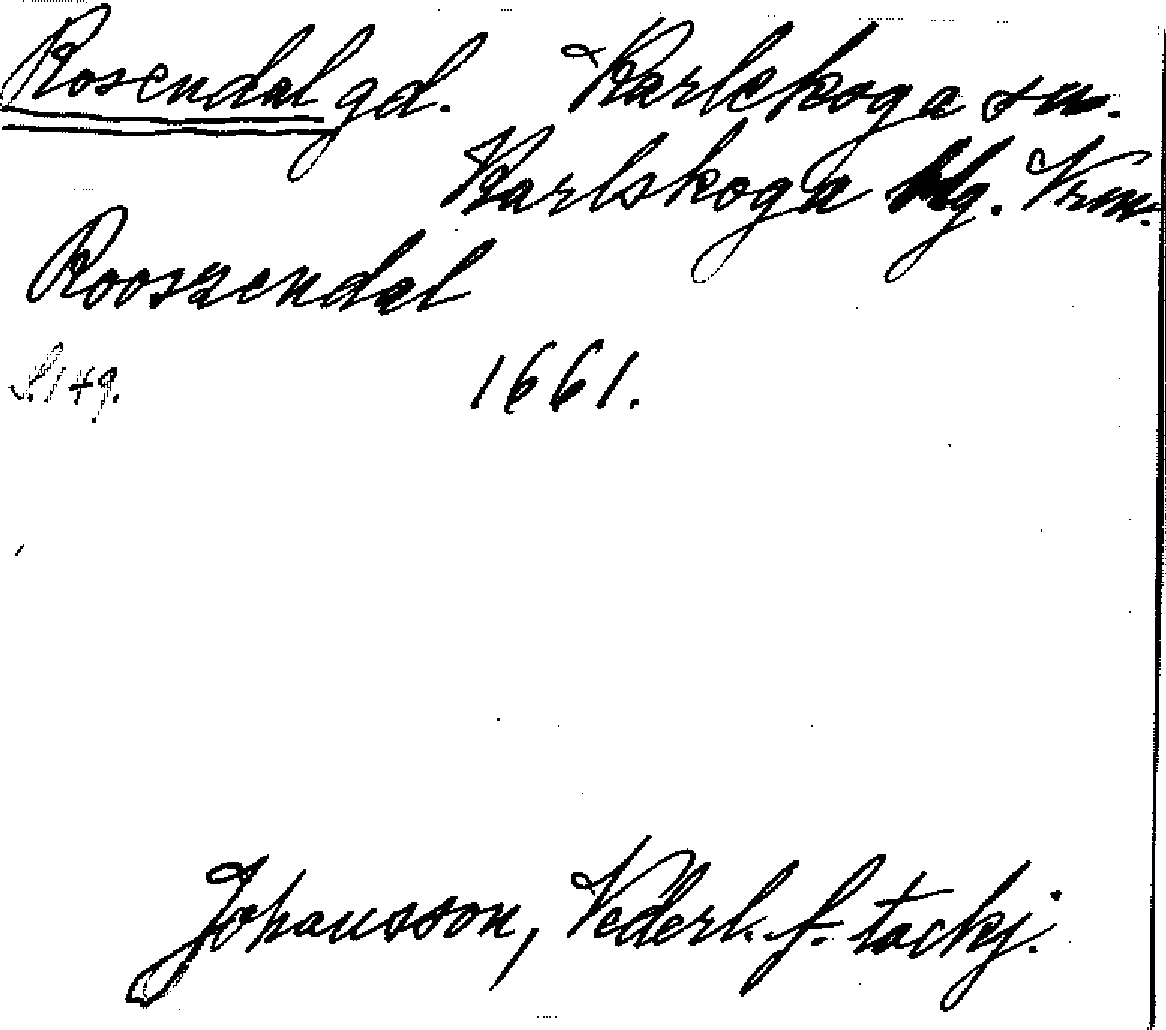 Rosendal gd. Karlskoga sn.
Karlskoga hg. Vrm.
Rooszendal
S. 149. 1661.
Johansson, Vederl. f. tackj.